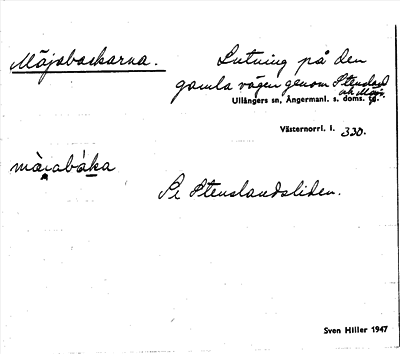 Mäjsbackarna.
Lutning på den
gamla vägen genom Stensland
och Mäjs.
Ullångers sn, Ångermanl. s. doms. sa.
Västernorrl. l. 330.
Se Stenslandsliden.
Sven Hiller 1947